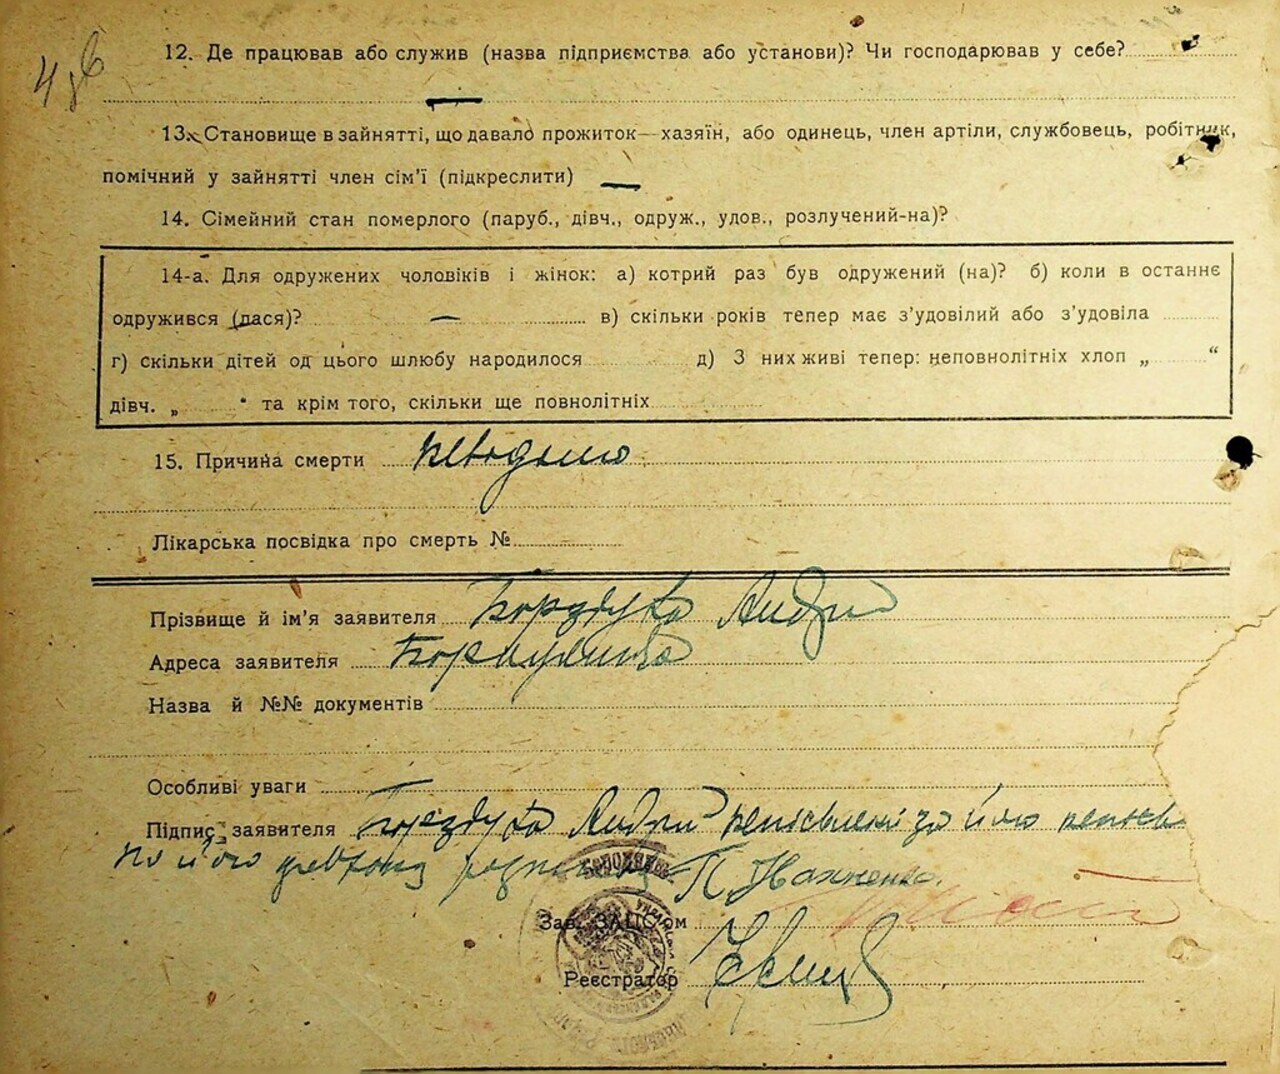 12. Де працював або служив (назва підприємства або установи)? Чи господарював у себе?
13. Становище в зайнятті, що давало прожиток—хазяїн, або одинець, член артіли, службовець, робітник,
помічний у зайнятті член сім'ї (підкреслити) —
14. Сімейний стан померлого (паруб., дівч., одруж., удов., розлучений-на)?
14-а. Для одружених чоловіків і жінок: а) котрий раз був одружений (на)? б) коли в останнє
одружився (лася)? — в) скільки років тепер має з'удовілий або з'удовіла
г) скільки дітей од цього шлюбу народилося д) З них живі тепер: неповнолітніх хлоп „ “
дівч. „ “ та крім того, скільки ще повнолітніх
15. Причина смерти невідомо
Лікарська посвідка про смерть №
Прізвище й ім'я заявителя Андрій
Адреса заявителя
Назва й №№ документів
Особливі уваги
Підпис заявителя Андрій за його
по його П. Івахненко.
Зав. ЗАЦС'ом
Реєстратор